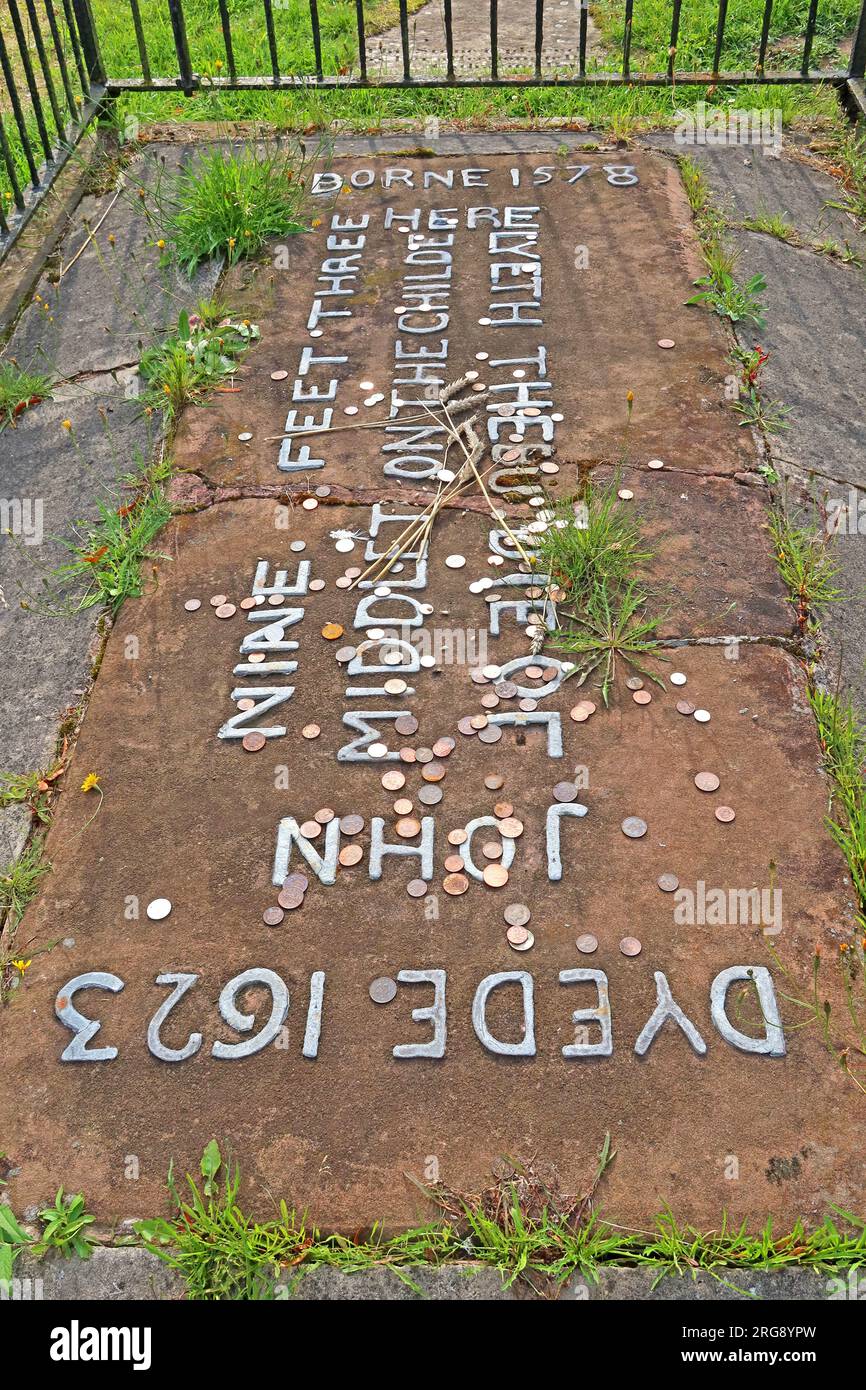 BORNE 1578
HERE
LYETH THE BODIE OF
JOHN
MIDDLETON THE CHILDE
NINE FEET THREE
DYEDE 1623
alamy
Image ID: 2RG8YPW
www.alamy.com